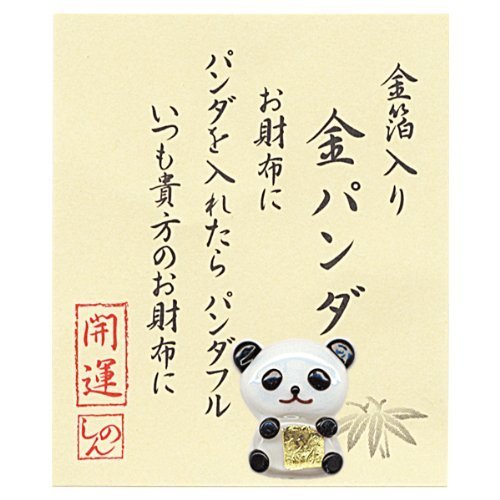 金箔入り
金パンダ
お財布に
パンダを入れたら パンダフル
いつも貴方のお財布に
開運
しのん